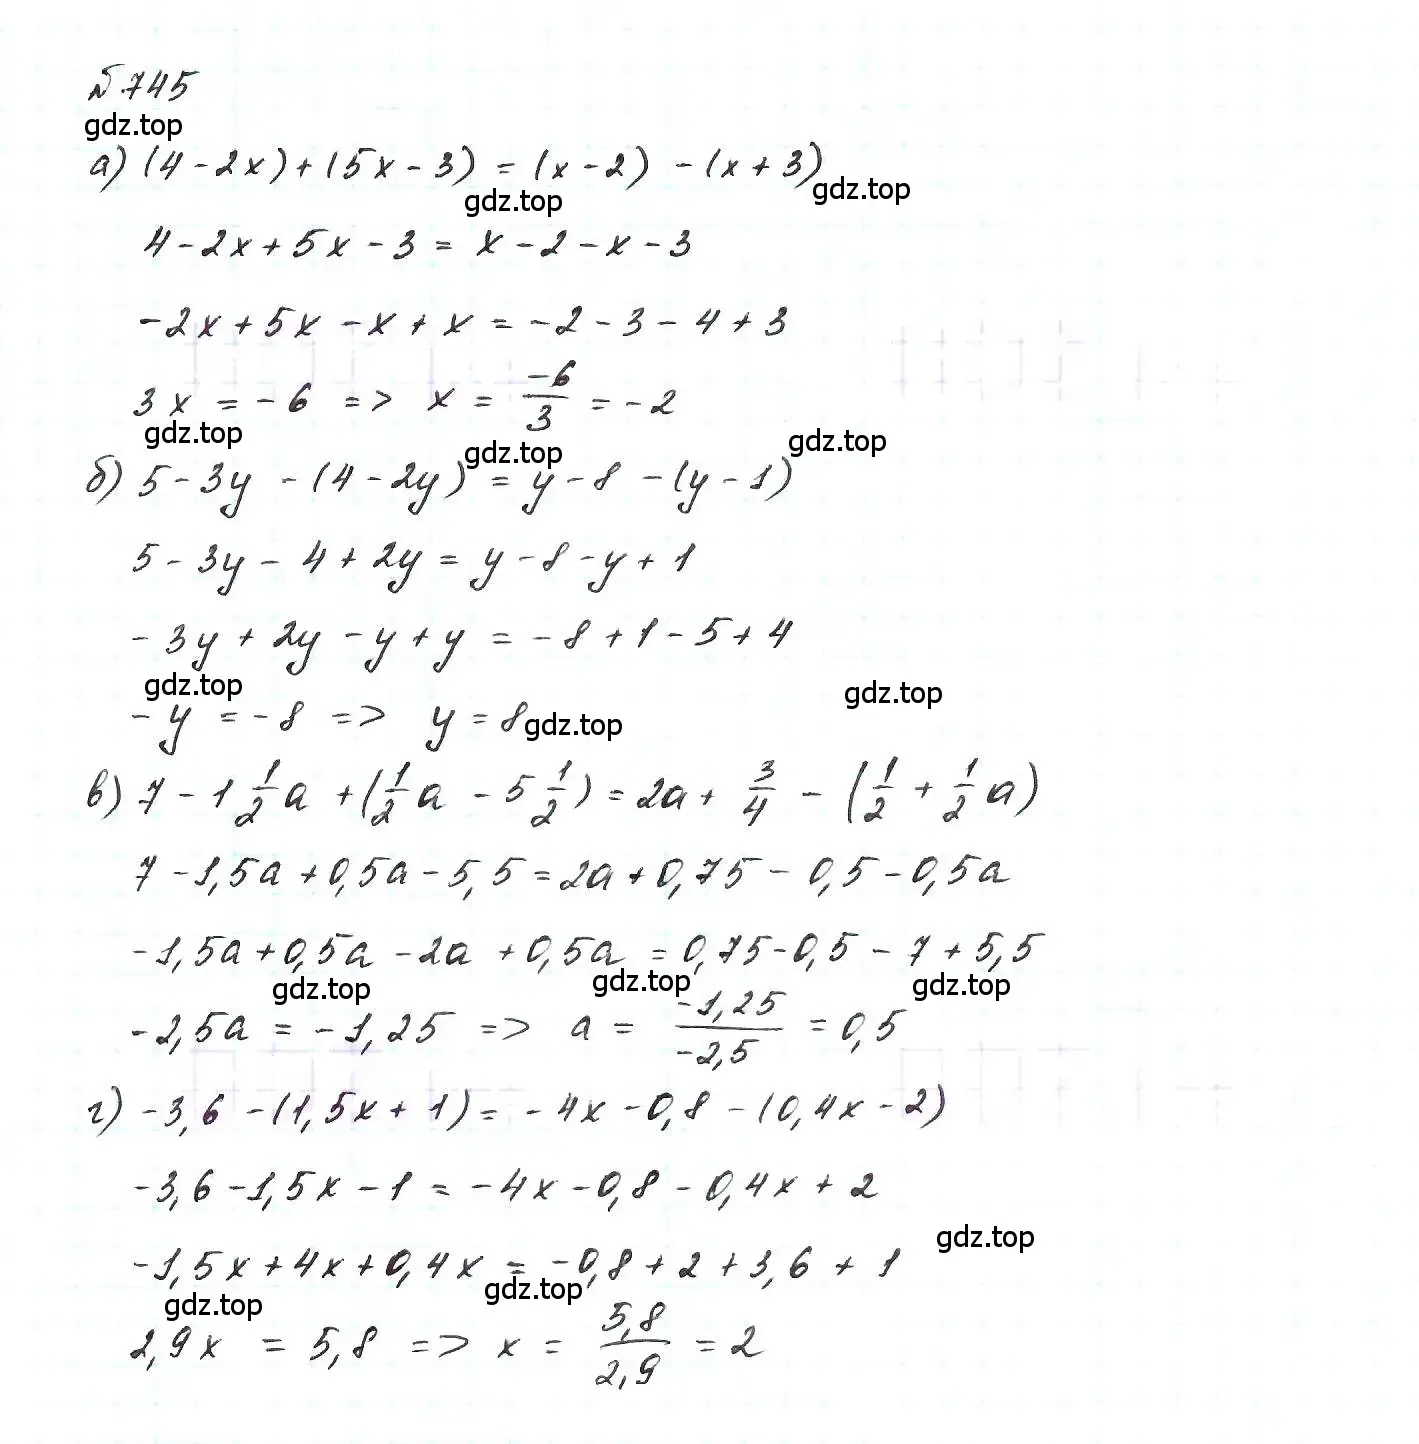 №745
gdz.top
а) (4-2x)+(5x-3) = (x-2) -(x+3)
gdz.top gdz.top
4-2x+5x-3 = x-2-x-3
-2x+5x-x+x = -2-3-4+3
3x = -6 => x = -6/3 = -2
gdz.top gdz.top gdz.top
б) 5-3y -(4-2y) = y-8 -(y-1)
5-3y-4+2y = y-8-y+1
-3y+2y-y+y = -8+1-5+4
gdz.top gdz.top
-y = -8 => y = 8
gdz.top
в) 7-1 1/2 a +(1/2 a - 5 1/2) = 2a+ 3/4 - (1/2 + 1/2 a)
7-1,5a+0,5a-5,5=2a+0,75-0,5-0,5a
-1,5a+0,5a-2a+0,5a = 0,75-0,5-7+5,5
gdz.top gdz.top gdz.top
-2,5a = -1,25 => a = -1,25/-2,5 = 0,5
г) -3,6-(1,5x+1) = -4x-0,8-(0,4x-2)
-3,6-1,5x-1 = -4x-0,8-0,4x+2
gdz.top
-1,5x+4x+0,4x = -0,8+2+3,6+1
gdz.top gdz.top
2,9x = 5,8 => x = 5,8/2,9 = 2